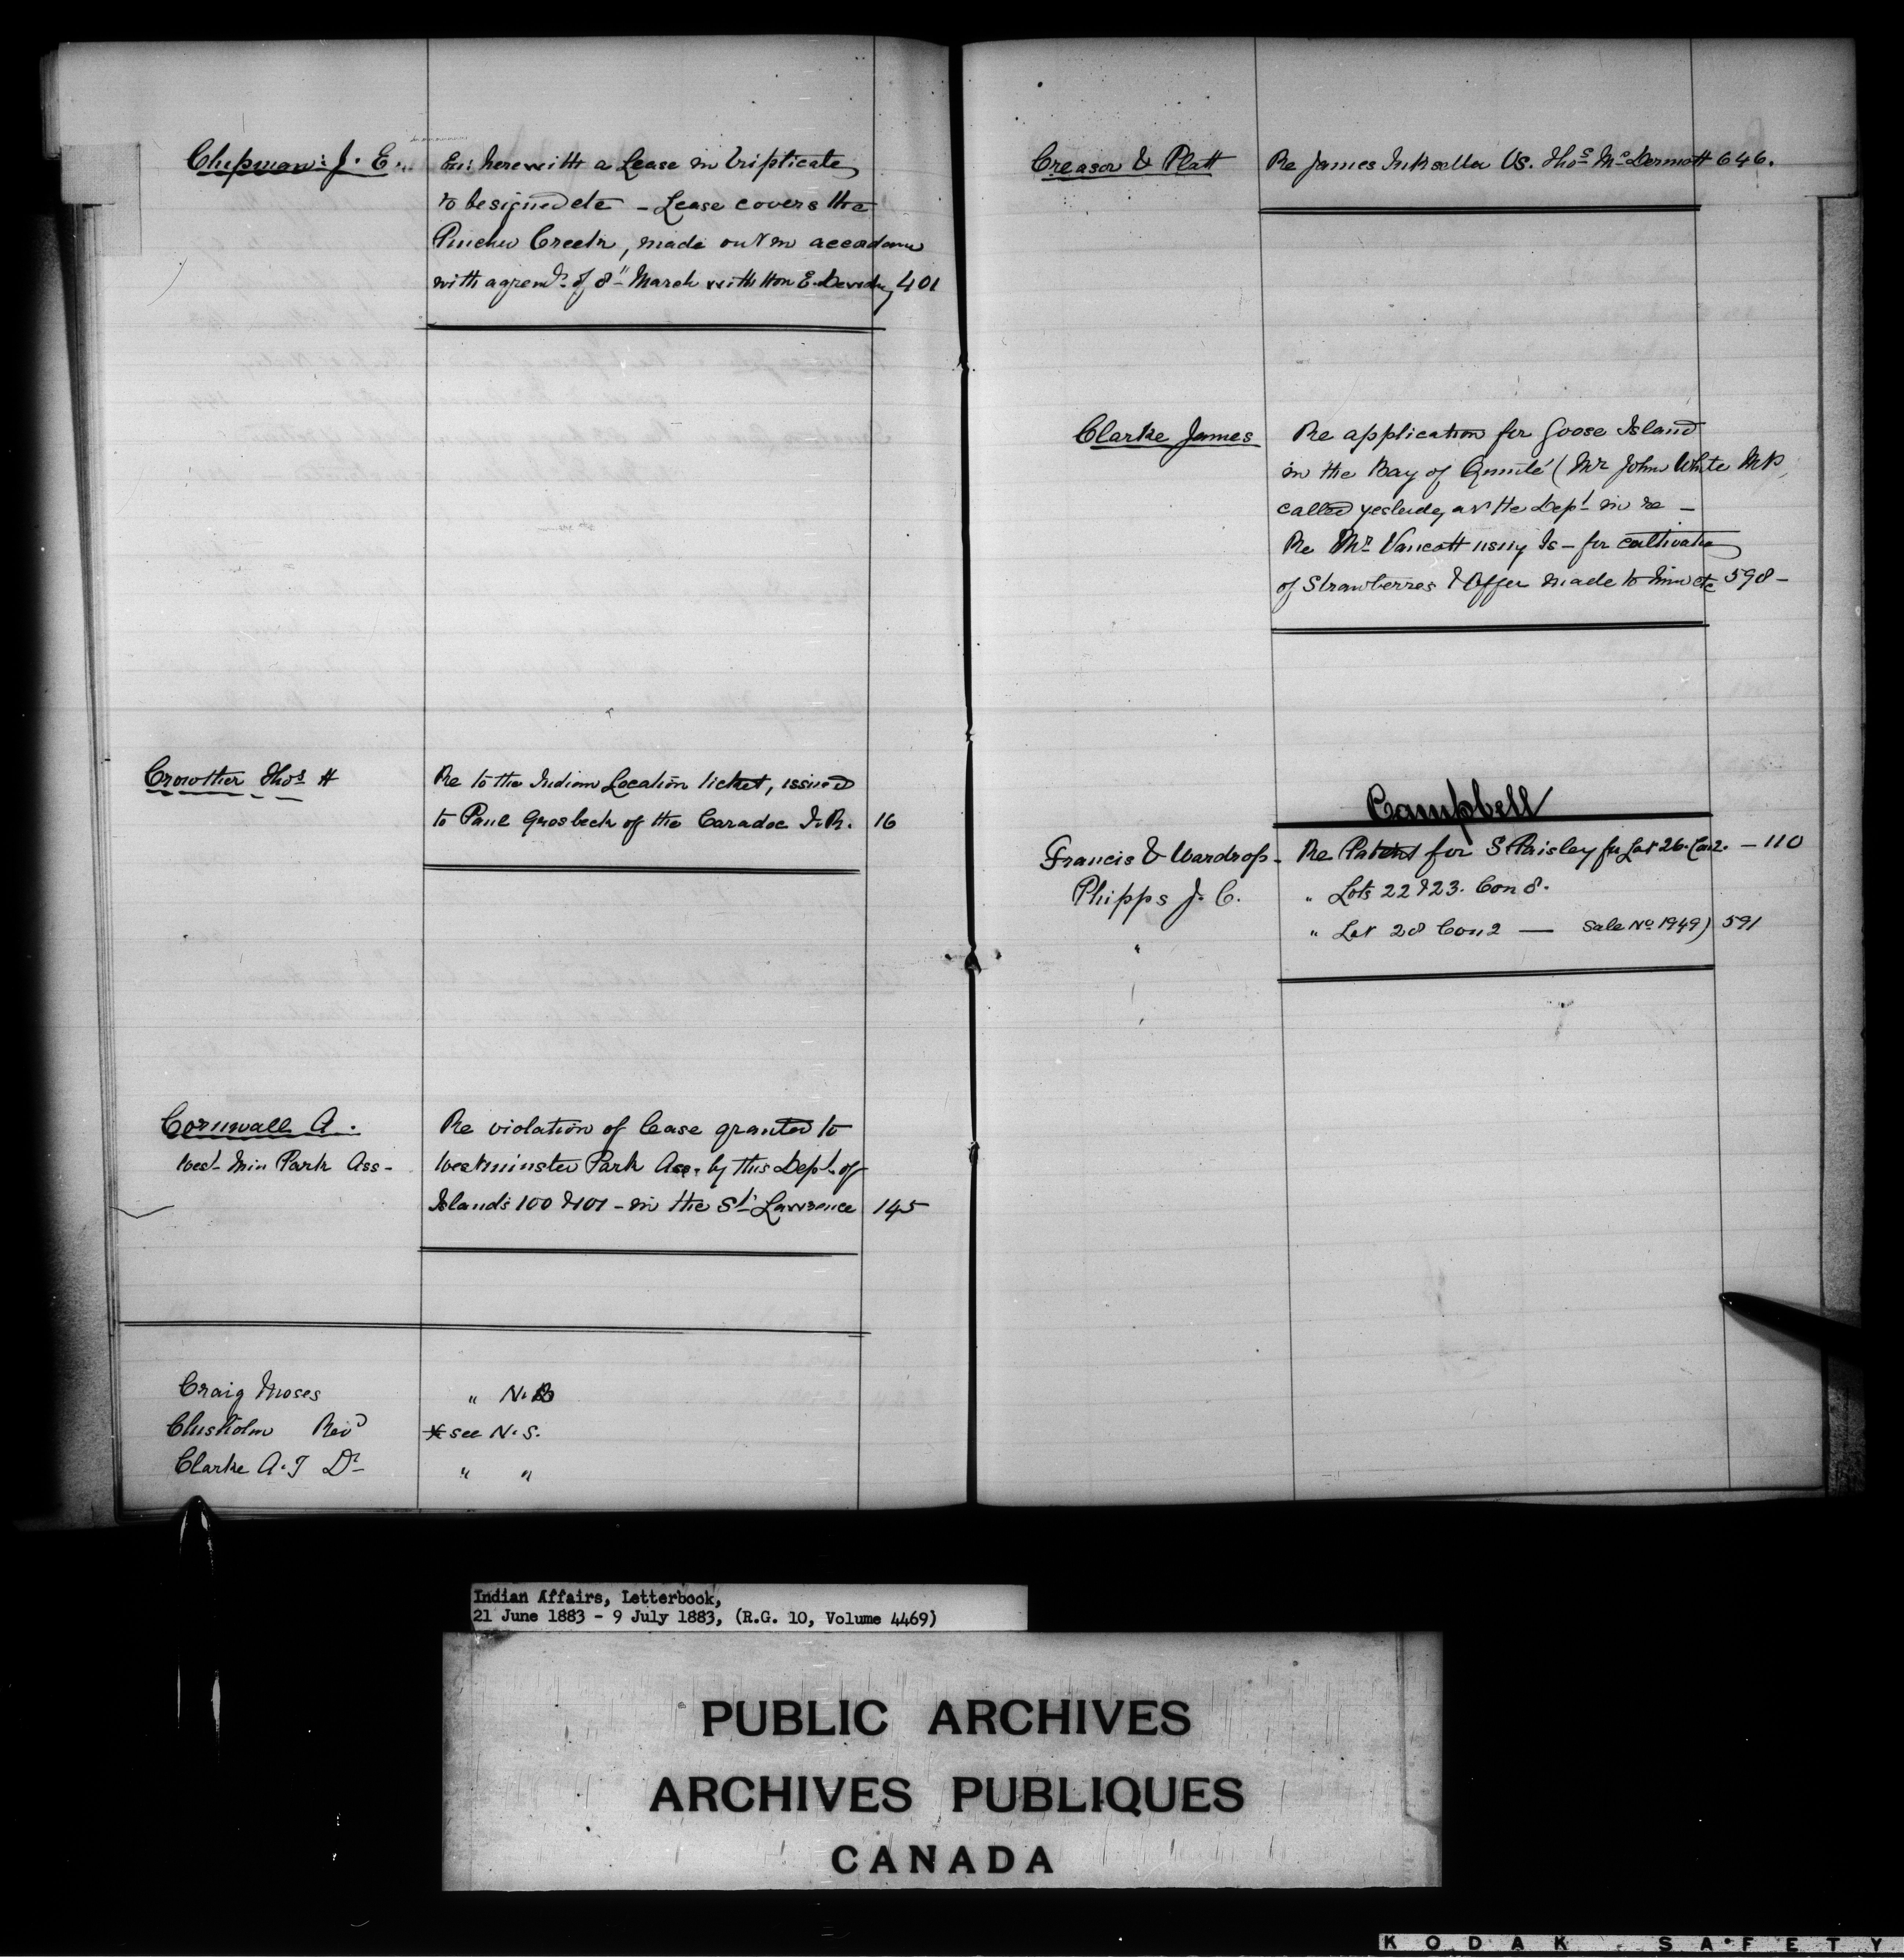 Chipman: J. E.
En: herewith a Lease in triplicate
to be signed etc - Lease covers the
Pincher Creek, made out in accordance
with agremt. of 8" March with Hon E. Dewdney 401
Crowther Thos H
Re to the Indian Location ticket, issued
to Paul Grosbeck of the Caradoc I.R. 16
Cornwall A.
West Min Park Ass-
Re violation of lease granted to
Westminster Park Ass. by this Dept. of
Islands 100 & 101 - in the St. Lawrence 145
Craig Moses " N.B
Chisholm Revd * see N.S.
Clarke A.T Dr " "
Creasor & Platt
Re James Inksetter Vs. Thos McDermott 646.
Clarke James
Re application for Goose Island
in the Bay of Quinté (Mr John White MP,
called yesterday at the Dept in re -
Re Mr Vancott using Is - for cultivation
of Strawberries & Offer made to him etc 598-
Campbell
Francis & Wardrop - Re Patent for S Paisley for Lot 26. Con 2. - 110
Phipps J. C. " Lots 22 & 23. Con 8.
" " Lot 28 Con 2 — Sale No 1949) 591
Indian Affairs, Letterbook,
21 June 1883 - 9 July 1883, (R.G. 10, Volume 4469)
PUBLIC ARCHIVES
ARCHIVES PUBLIQUES
CANADA
KODAK SAFETY